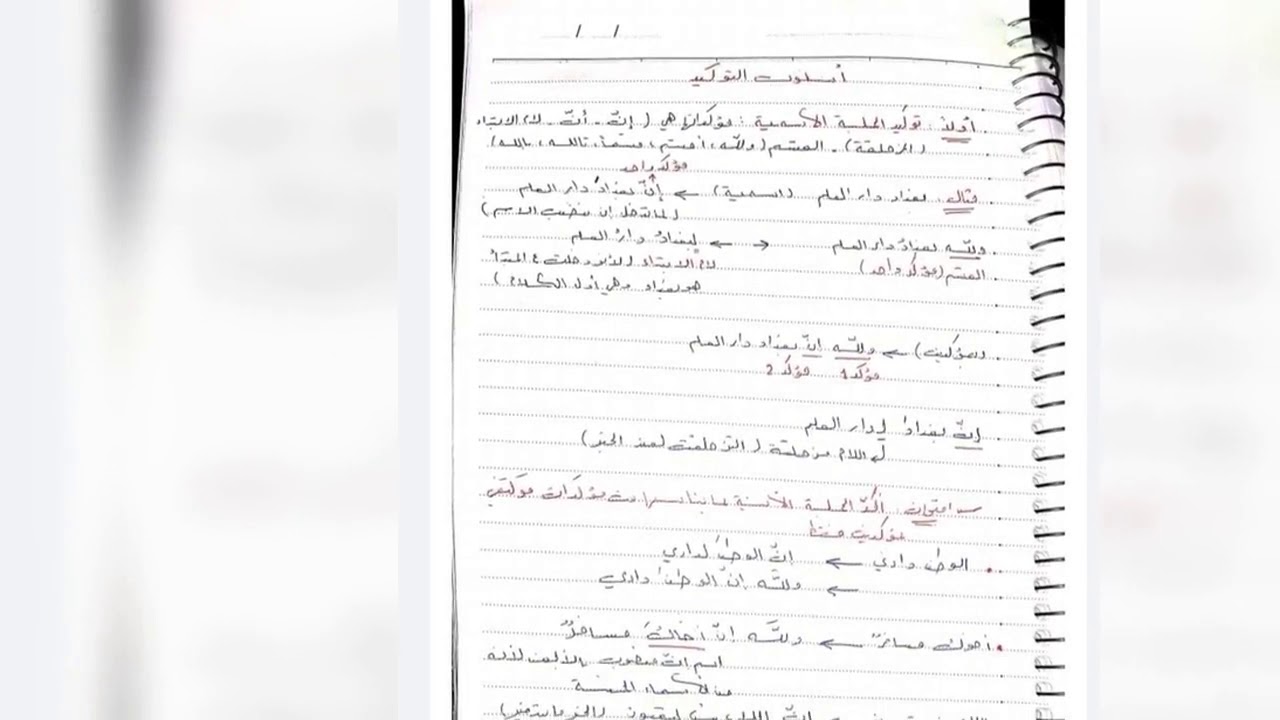 أسلوب التوكيد
أولاً : توكيد الجملة الاسمية : مؤكداتها هي ( إنّ - أنّ - لام الابتداء
( المزحلقة ) - القسم ( والله ، أقسم ، قسماً ، تالله ، بالله )
مؤكد واحد
مثال : بغداد دار العلم ( اسمية ) ← إنّ بغدادَ دار العلم
( لما تدخل إن تنصب الاسم )
والله بغدادُ دار العلم ← → لبغدادُ دارُ العلم
القسم ( مؤكد واحد ) لام الابتداء ( لأنو دخلت ع المبتدأ
هو بغداد وهي أول الكلام )
( بمؤكدين ) ← والله إنّ بغداد دار العلم
مؤكد 1 مؤكد 2
إنّ بغدادَ لدار العلم
اللام مزحلقة ( اتزحلقت لعند الخبر )
امتحان : أكّد الجملة الآتية بما يناسبها من مؤكدات
مؤكدين فقط
الوطن داري ← إنّ الوطنَ لداري
← والله إنّ الوطنَ داري
أخوك مسافرٌ ← والله إنّ أخاكَ مسافرٌ
اسم إنّ منصوب بالألف لأنه
من الأسماء الخمسة